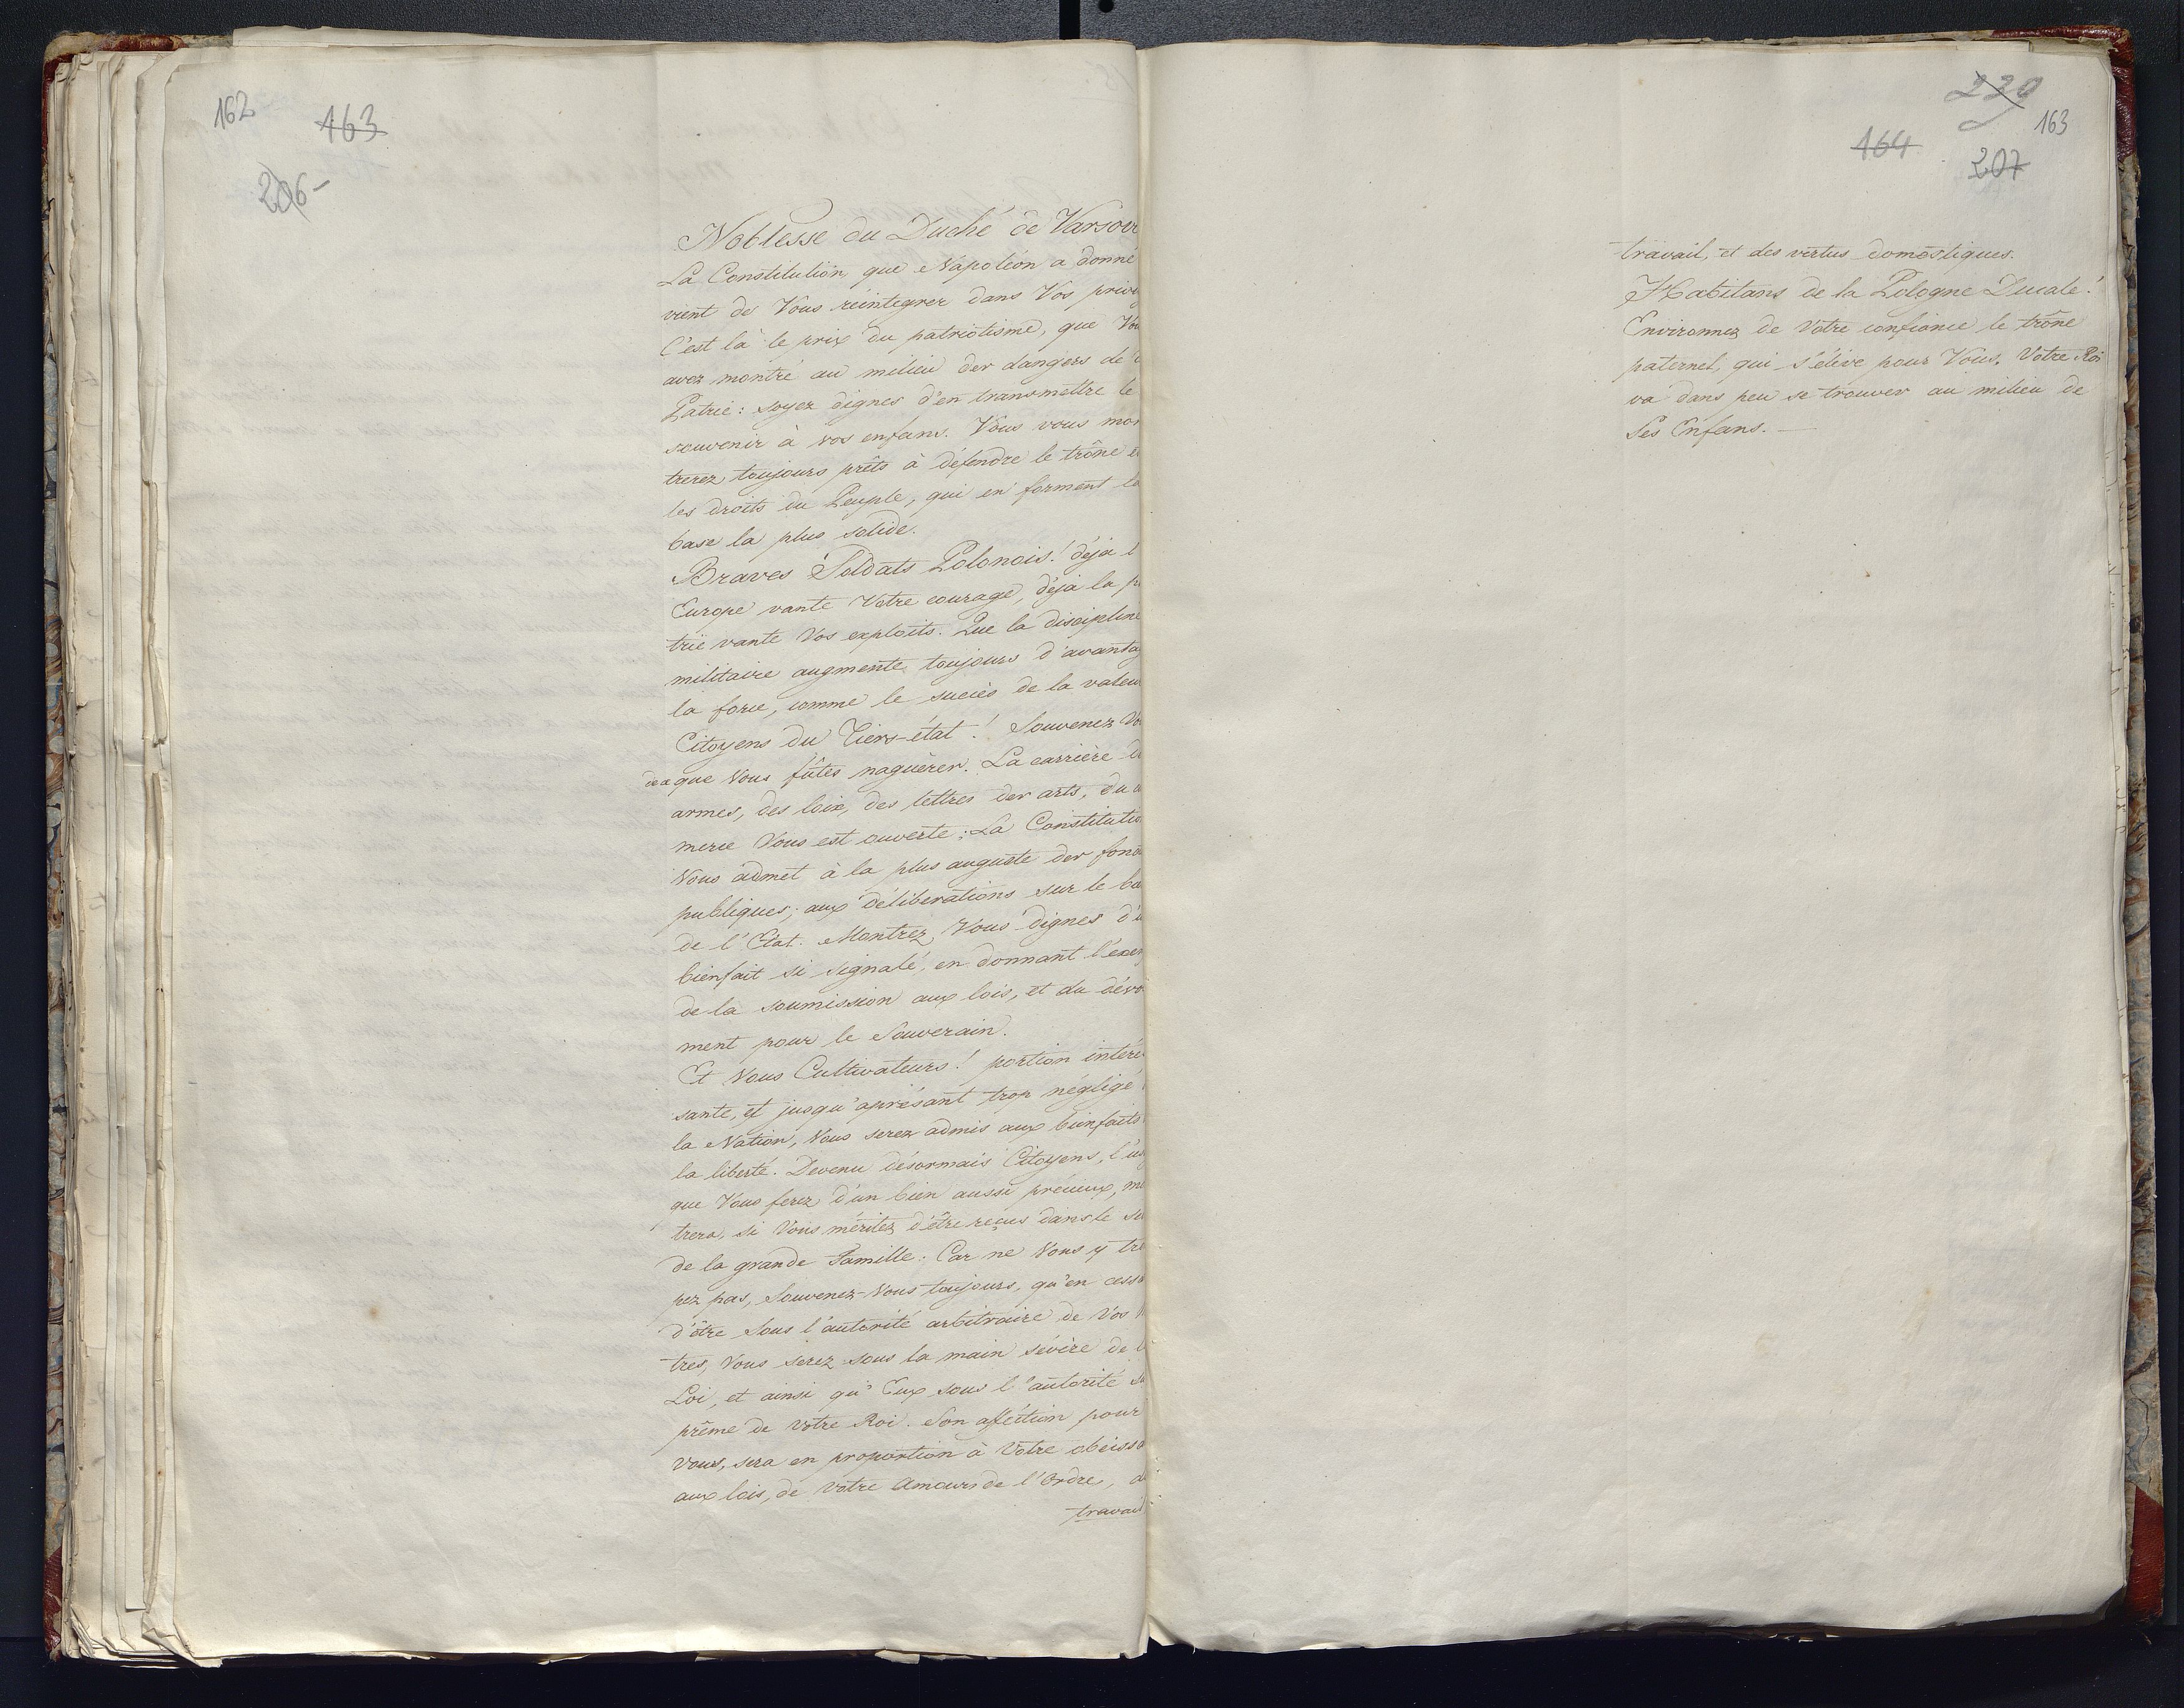 162
163
206-
Noblesse du Duché de Varsov
La Constitution, que Napoléon a donné
vient de Vous réintegrer dans Vos privi
C'est là le prix du patriotisme, que Vo
avez montré au milieu der dangers de
Patrie: soyez dignes d'en transmettre le
souvenir à vos enfans. Vous vous mon
trerez toujours prêts à défendre le trône e
les droits du Peuple, qui en forment la
base la plus solide.
Braves Soldats Polonois! déja l
Europe vante Votre courage, déja la pa
trie vante Vos exploits. Que la discipline
militaire augmente toujours d'avanta
la force, comme le succès de la valeur
Citoyens du Tiers-état! Souvenez Vo
de a que Vous fûtes naguèrer. La carrière de
armes, des loix, des lettres der arts, du c
merce Vous est ouverte; La Constitutio
Vous admet à la plus auguste der fonc
publiques; aux déliberations sur le b
de l'Etat. Montrez Vous dignes d'u
bienfait si signalé, en donnant l'exem
de la soumission aux lois, et du dévo
ment pour le Souverain.
Et Vous Cultivateurs! portion intére
sante, et jusqu'aprésant trop négligé
la Nation, Vous serez admis aux bienfaits
la liberté. Devenu désormais Citoyens, l'us
que Vous ferez d'un bien aussi précieux, mo
trera, si Vous méritez d'être reçus dans le se
de la grande Famille: Car ne Vous y tro
pez pas, Souvenez-Vous toujours, qu'en cessa
d'être sous l'autorité arbitraire de Vos M
tres, Vous serez sous la main sévère de l
Loi, et ainsi qu'Eux sous l'autorité su
prême de Votre Roi. Son affection pour
vous, sera en proportion à Votre obéissa
aux lois, de Votre Amour de l'Ordre, d
travail
239
163
164
207
travail, et des vertus domestiques.
Habitans de la Pologne Ducale!
Environnez de Votre confiance le trône
paternel, qui s'élève pour Vous. Votre Roi
va dans peu se trouver au milieu de
Ses Enfans.—